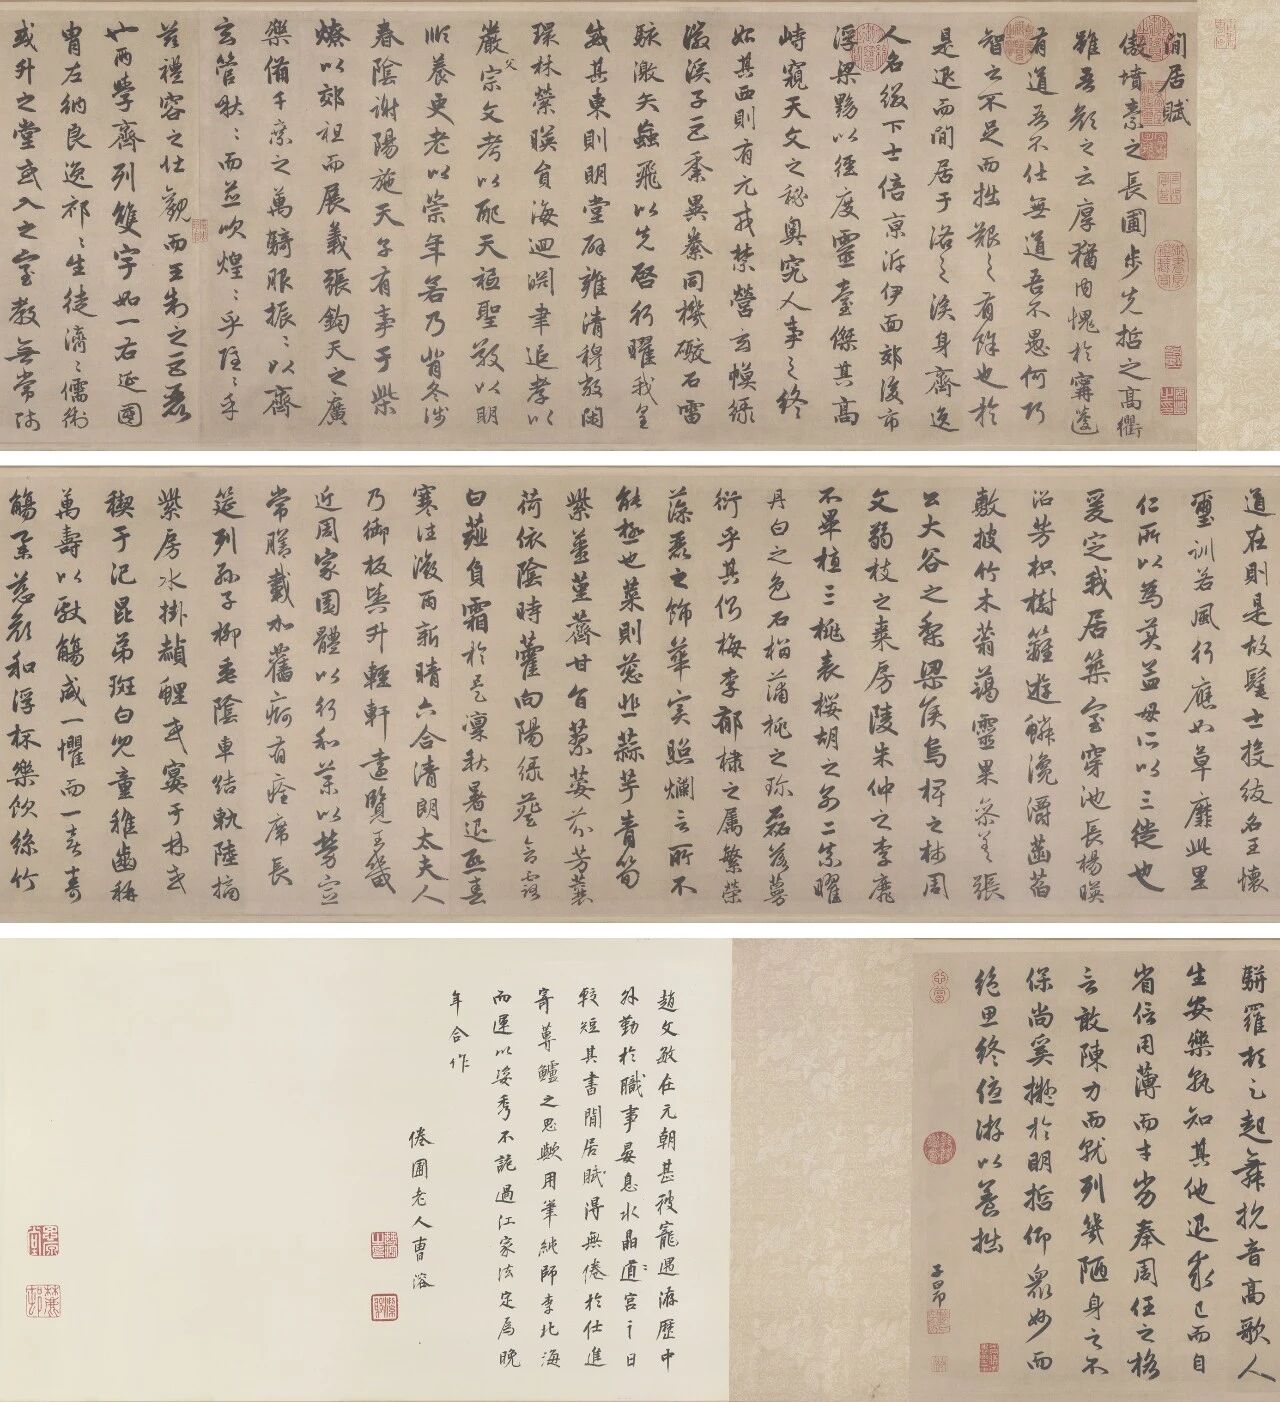 閒居賦
傲墳素之長圃步先哲之高衢
雖吾顏之云厚猶內愧於甯蘧
有道吾不仕無道吾不愚何巧
智之不足而拙艱之有餘也於
是退而閒居于洛之涘身齊逸
人名綴下士倍京泝伊面郊後市
浮梁黝以徑度靈臺傑其高
峙窺天文之秘奧究人事之終
始其西則有元戎禁營玄幙綠
徽溪子巨黍異絭同機礮石雷
駭激矢蝱飛以先啓行曜我皇
威其東則明堂辟雍清穆敞閑
環林縈暎負海迴淵聿追孝以
嚴父宗文考以配天祗聖敬以明
順養更老以崇年若乃背冬涉
春陰謝陽施天子有事于柴
燎以郊祖而展義張鈞天之廣
樂備千乘之萬騎服振〻以齊
玄管啾〻而並吹煌〻乎隱〻乎
茲禮容之壯觀而王制之巨麗
也兩學齊列雙宇如一右延國
胄左納良逸祁〻生徒濟〻儒術
或升之堂或入之室教無常師
道在則是故髦士投紱名王懷
璽訓若風行應如草靡此里
仁所以為美孟母所以三徙也
爰定我居築室穿池長楊暎
沼芳枳樹籬遊鱗瀺灂菡萏
敷披竹木蓊藹靈果參差張
公大谷之梨梁侯烏椑之柿周
文弱枝之棗房陵朱仲之李靡
不畢植三桃表櫻胡之別二柰曜
丹白之色石榴蒲桃之珍磊落蔓
衍乎其側梅李郁棣之屬繁榮
藻麗之飾華實照爛言所不
能極也菜則葱韭蒜芋青筍
紫薑堇薺甘旨蓼荾芬芳蘘
荷依陰時藿向陽綠葵含露
白薤負霜於是凜秋暑退熙春
寒往微雨新晴六合清朗太夫人
乃御板輿升輕軒遠覽王畿
近周家園體以行和藥以勞宣
常膳載加舊痾有痊席長
筵列孫子柳垂陰車結軌陸摘
紫房水掛赬鯉或宴于林或
禊于汜昆弟斑白兒童稚齒稱
萬壽以獻觴咸一懼而一喜壽
觴舉慈顏和浮杯樂飲絲竹
駢羅頓足起舞抗音高歌人
生安樂孰知其他退求己而自
省信用薄而才劣奉周任之格
言敢陳力而就列幾陋身之不
保尚奚擬於明哲仰衆妙而
絕思終優游以養拙
子昂
趙文敏在元朝甚被寵遇游歷中
外勤於職事晏息水晶道宮之日
較短其書閒居賦得無倦於仕進
寄蓴鱸之思歟用筆純師李北海
而運以姿秀不詭過江家法定為晚
年合作
倦圃老人曹溶